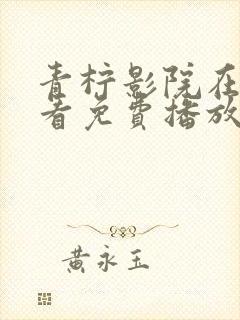 青柠影院在
看免費播放
黄永玉